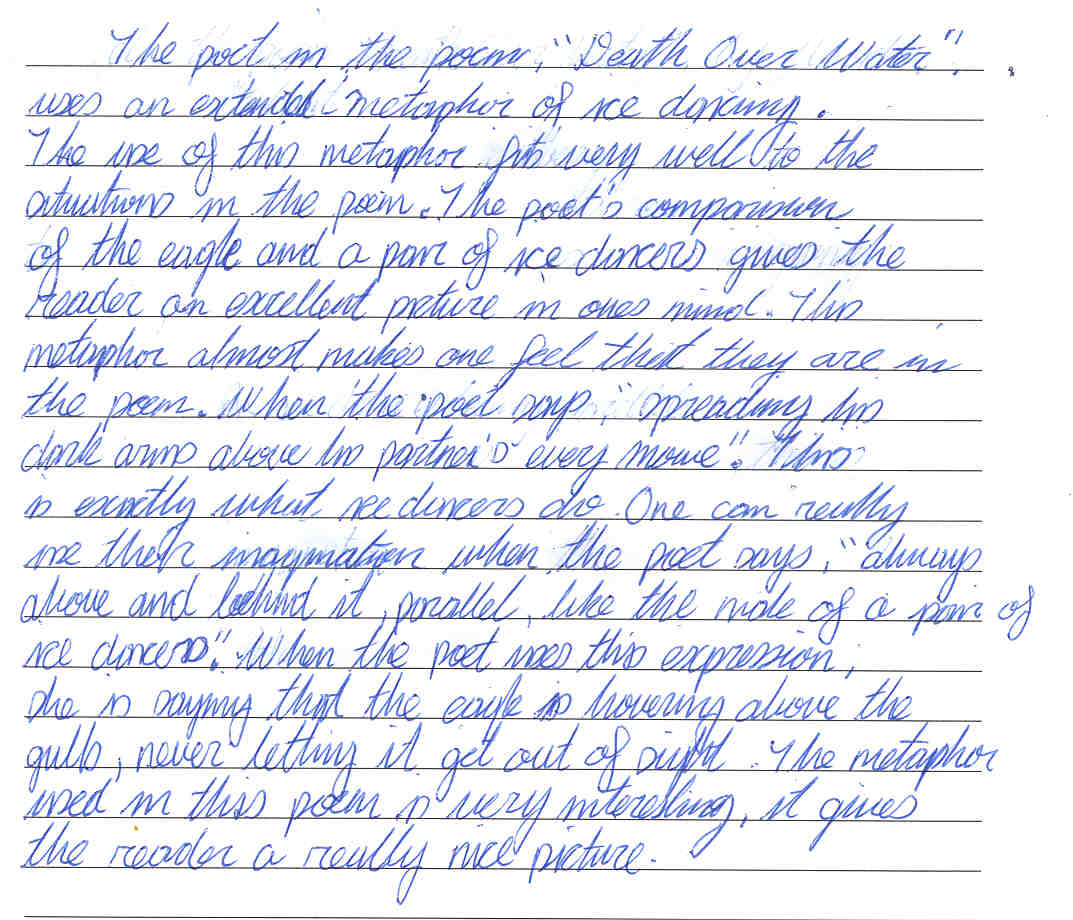 The poet in the poem, "Death Over Water",
uses an extended metaphor of ice dancing.
The use of this metaphor fits very well to the
situations in the poem. The poet's comparison
of the eagle and a pair of ice dancers gives the
reader an excellent picture in ones mind. This
metaphor almost makes one feel that they are in
the poem. When the poet says, "spreading his
dark arms above his partner's every move". This
is exactly what ice dancers do. One can really
use their imagination when the poet says, "always
above and behind it, parallel, like the male of a pair of
ice dancers". When the poet uses this expression,
she is saying that the eagle is hovering above the
gulls, never letting it get out of sight. The metaphor
used in this poem is very interesting, it gives
the reader a really nice picture.